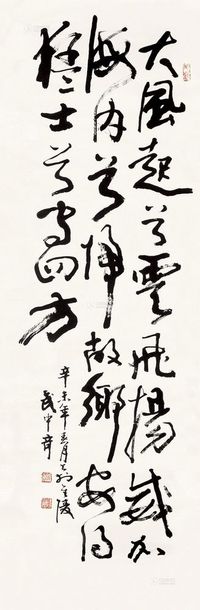 大風起兮雲飛揚威加
海内兮歸故鄉安得
猛士兮守四方
辛未年月於金陵
武中奇